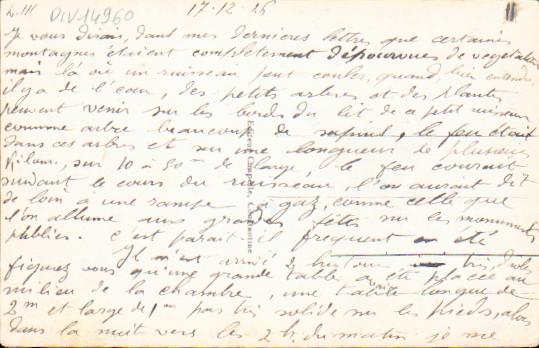 L. III DIV14960 17-12-26 II
Je vous disais, dans mes dernières lettres que certaines
montagnes étaient complètement dépourvues de végétation
mais là où un ruisseau peut couler, quand bien entendu
il y a de l'eau, des petits arbres et des plantes
peuvent venir sur les bords du lit de ce petit ruisseau
comme arbre beaucoup de sapins, le feu était
dans ces arbres et sur une longueur de plusieurs
kilom, sur 10 à 50m de large, le feu courant
suivant le cours du ruisseau, l'on aurait dit
de loin à une rampe à gaz, comme celle que
l'on allume aux grandes fêtes sur les monuments
publics. C'est paraît il fréquent en été
Il m'est arrivé 2 histoires très drôles
figurez vous qu'une grande table a été placée au
milieu de la chambre, une table longue de
2m et large de 1m pas très solide sur les pieds, alors
dans la nuit vers les 2 h. du matin je me
Chapelle, Constantine